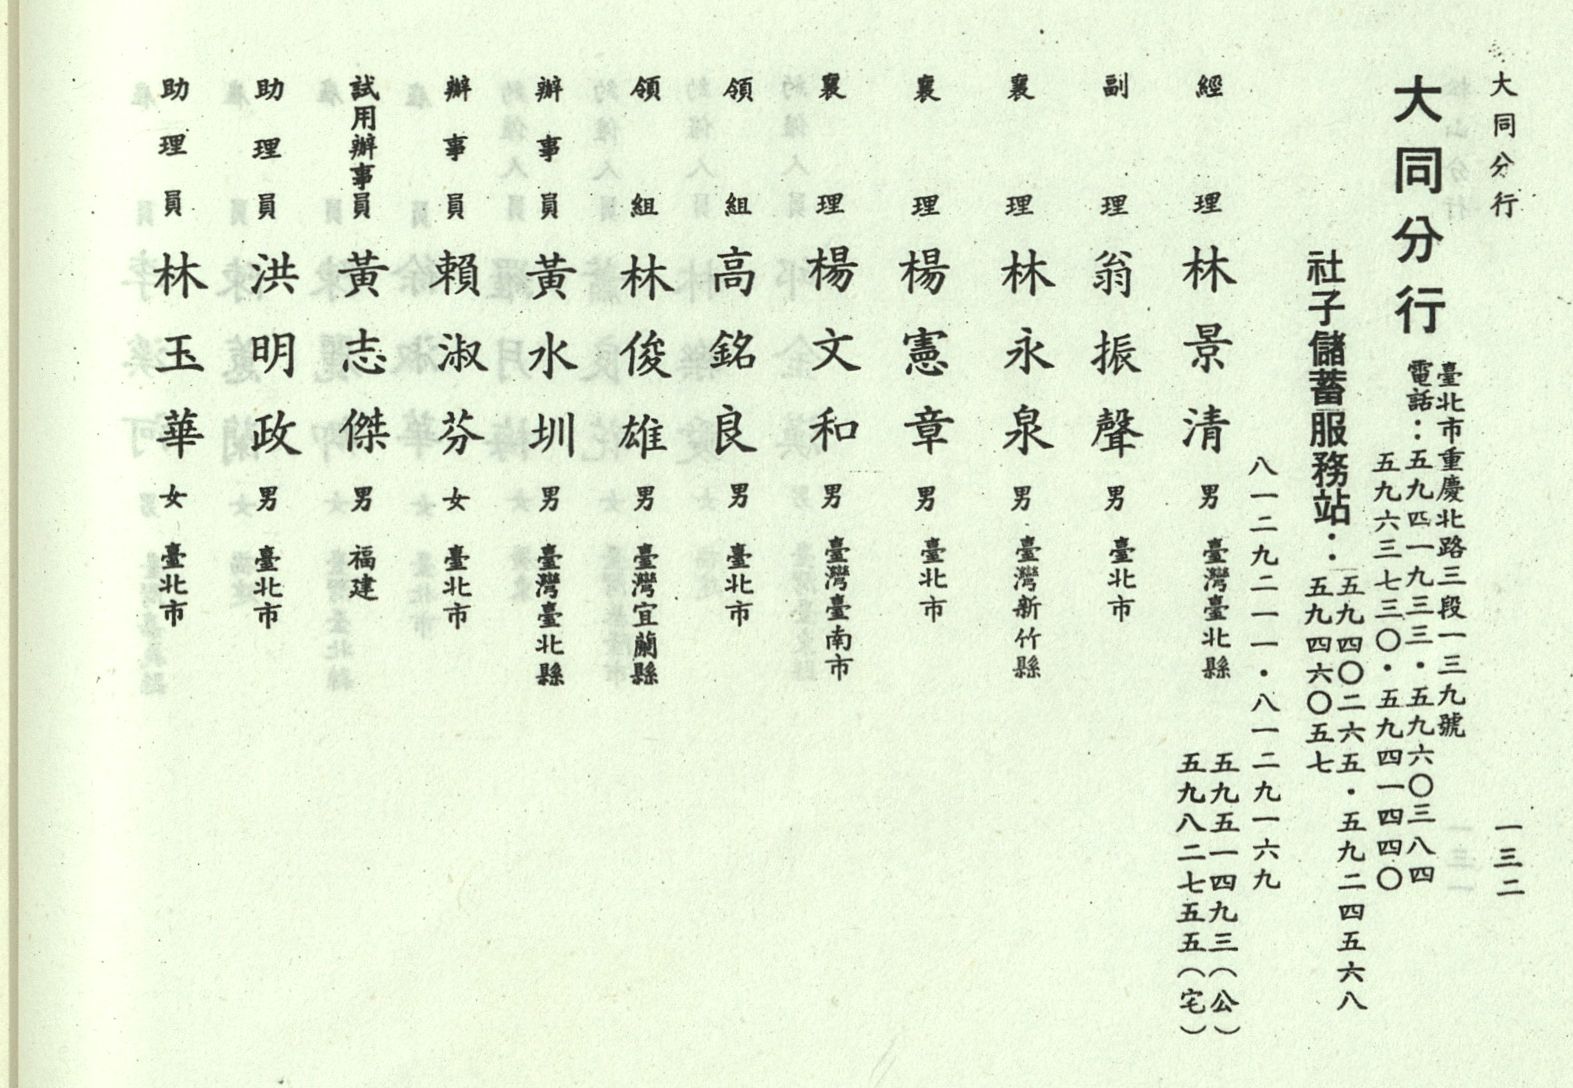 大同分行
一三二
大同分行
臺北市重慶北路三段一三九號
電話：五九四一九三三・五九六〇三八四
五九六三七三〇・五九四一四四〇
社子儲蓄服務站：五九四〇二六五・五九二四五六八
五九四六〇五七
八一二九二一一・八一二九一六九
經理 林景清 男 臺灣臺北縣 五九五一四九三（公）
五九八二七五五（宅）
副理 翁振聲 男 臺北市
襄理 林永泉 男 臺灣新竹縣
襄理 楊憲章 男 臺北市
襄理 楊文和 男 臺灣臺南市
領組 高銘良 男 臺北市
領組 林俊雄 男 臺灣宜蘭縣
辦事員 黃水圳 男 臺灣臺北縣
辦事員 賴淑芬 女 臺北市
試用辦事員 黃志傑 男 福建
助理員 洪明政 男 臺北市
助理員 林玉華 女 臺北市